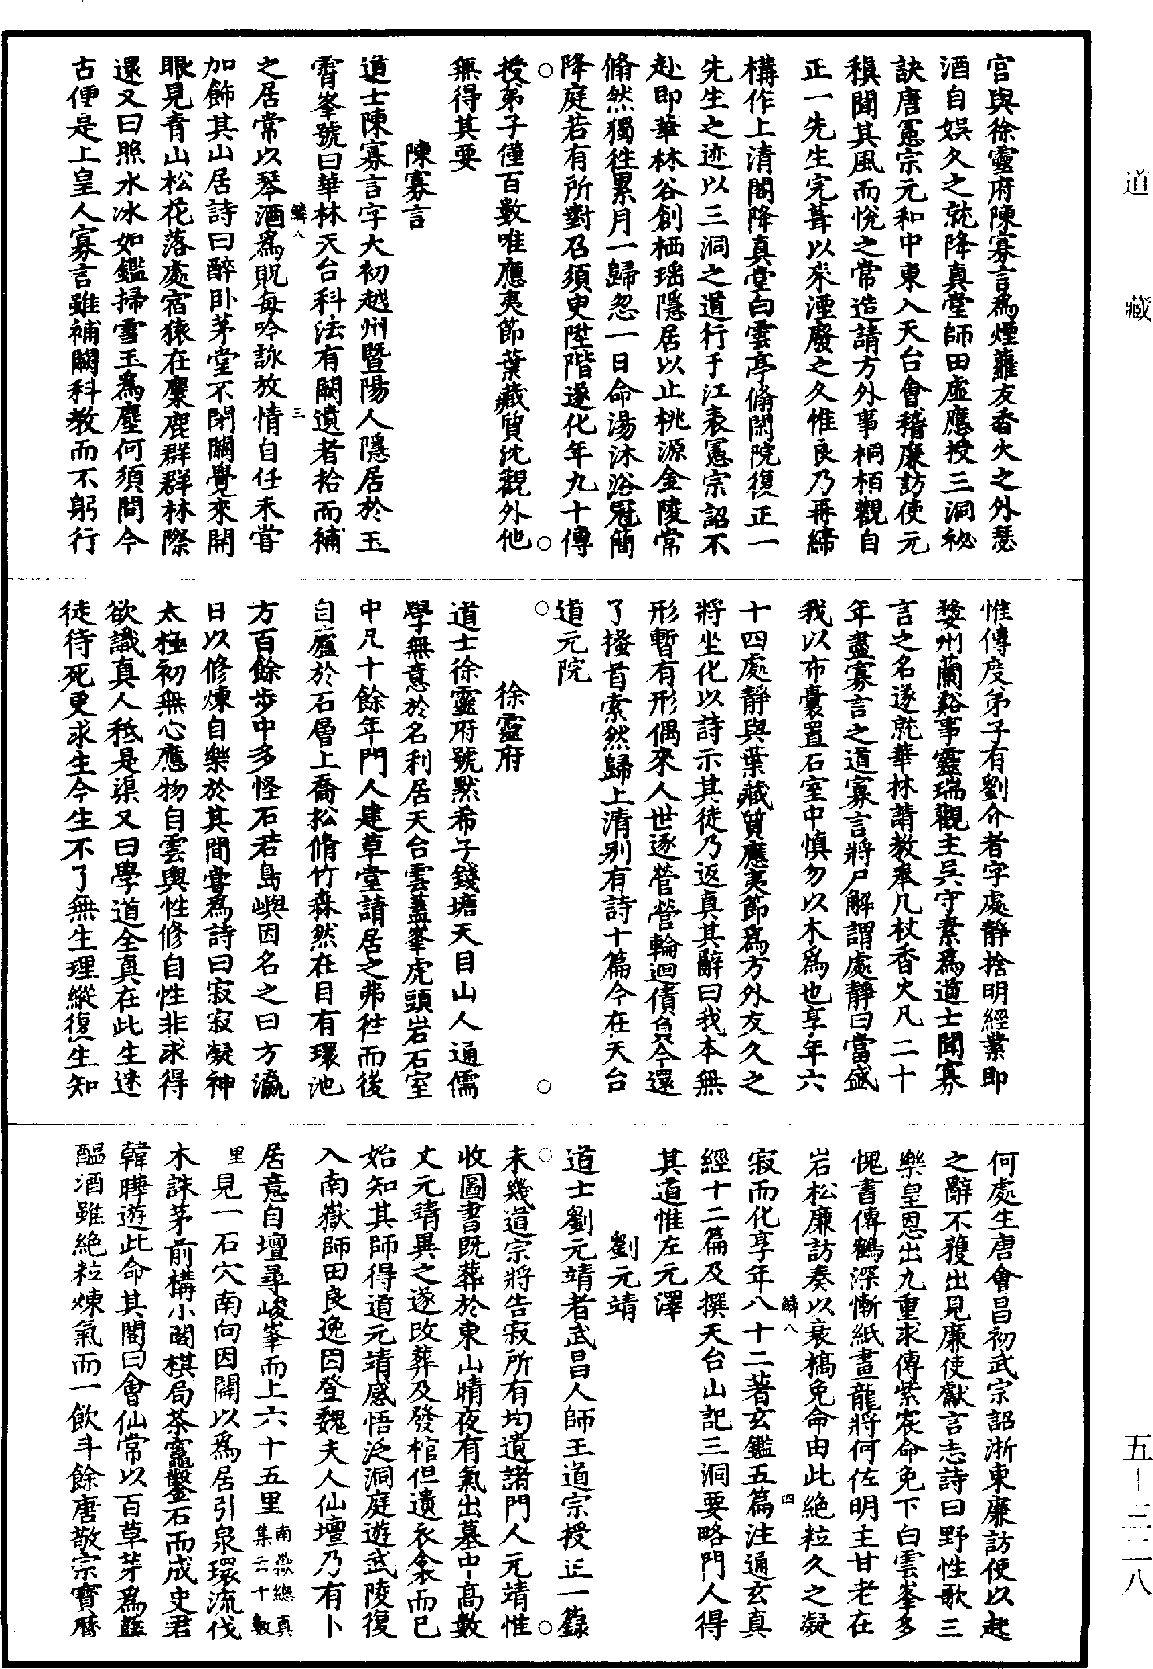 道藏
五－三二八
宫與徐靈府陳寡言爲煙蘿友香火之外琴
酒自娱久之就降真堂師田虚應授三洞秘
訣唐憲宗元和中東入天台會稽廉訪使元
稹聞其風而悅之常造請方外事桐栢觀自
正一先生完葺以來湮廢之久惟良乃再締
構作上清閣降真堂白雲亭翛閑院復正一
先生之迹以三洞之道行于江表憲宗詔不
赴即華林谷創栖瑶隱居以止桃源金陵常
翛然獨往累月一歸忽一日命湯沐浴冠簡
降庭若有所對召須臾陞階遂化年九十傳
授弟子僅百數唯應夷節葉藏質沈觀外他
無得其要
陳寡言
道士陳寡言字大初越州暨陽人隱居於玉
霄峯號曰華林天台科法有闕遺者拾而補
鱗八
三
之居常以琴酒爲貺每吟詠放情自任未嘗
加飾其山居詩曰醉卧茅堂不閉關覺來開
眼見青山松花落處宿猿在麋鹿群群林際
還又曰照水冰如鑑掃雪玉爲塵何須問今
古便是上皇人寡言雖補闕科教而不躬行
惟傳度弟子有劉介者字處静捨明經業即
婺州蘭谿事靈瑞觀主吳守素爲道士聞寡
言之名遂就華林請教奉几杖香火凡二十
年盡寡言之道寡言將尸解謂處静曰當盛
我以布囊置石室中慎勿以木爲也享年六
十四處静與葉藏質應夷節爲方外友久之
將坐化以詩示其徒乃返真其辭曰我本無
形暫有形偶來人世逐營營輪迴債負今還
了搔首索然歸上清别有詩十篇今在天台
道元院
徐靈府
道士徐靈府號默希子錢塘天目山人通儒
學無意於名利居天台雲蓋峯虎頭岩石室
中凡十餘年門人建草堂請居之弗往而後
自廬於石層上喬松脩竹森然在目有環池
方百餘步中多怪石若島嶼因名之曰方瀛
日以修煉自樂於其間嘗爲詩曰寂寂凝神
太極初無心應物自雲輿性修自性非求得
欲識真人秖是渠又曰學道全真在此生迷
徒待死更求生今生不了無生理縱復生知
何處生唐會昌初武宗詔浙東廉訪使以起
之辭不獲出見廉使獻言志詩曰野性歌三
樂皇恩出九重求傳紫宸命免下白雲峯多
愧書傳鶴深慚紙畫龍將何佐明主甘老在
岩松廉訪奏以衰槁免命由此絶粒久之凝
鱗八
四
寂而化享年八十二著玄鑑五篇注通玄真
經十二篇及撰天台山記三洞要略門人得
其道惟左元澤
劉元靖
道士劉元靖者武昌人師王道宗授正一籙
未幾道宗將告寂所有均遺諸門人元靖惟
收圖書既葬於東山晴夜有氣出墓中高數
丈元靖異之遂改葬及發棺但遺衣衾而已
始知其師得道元靖感悟泛洞庭遊武陵復
入南嶽師田良逸因登魏夫人仙壇乃有卜
居意自壇尋峻峯而上六十五里南嶽總真集云十數
里見一石穴南向因闢以爲居引泉環流伐
木誅茅前構小閣棋局茶竈鑿石而成史君
韓曄遊此命其閣曰會仙常以百草芽爲䪥
醖酒雖絶粒煉氣而一飲斗餘唐敬宗寶曆